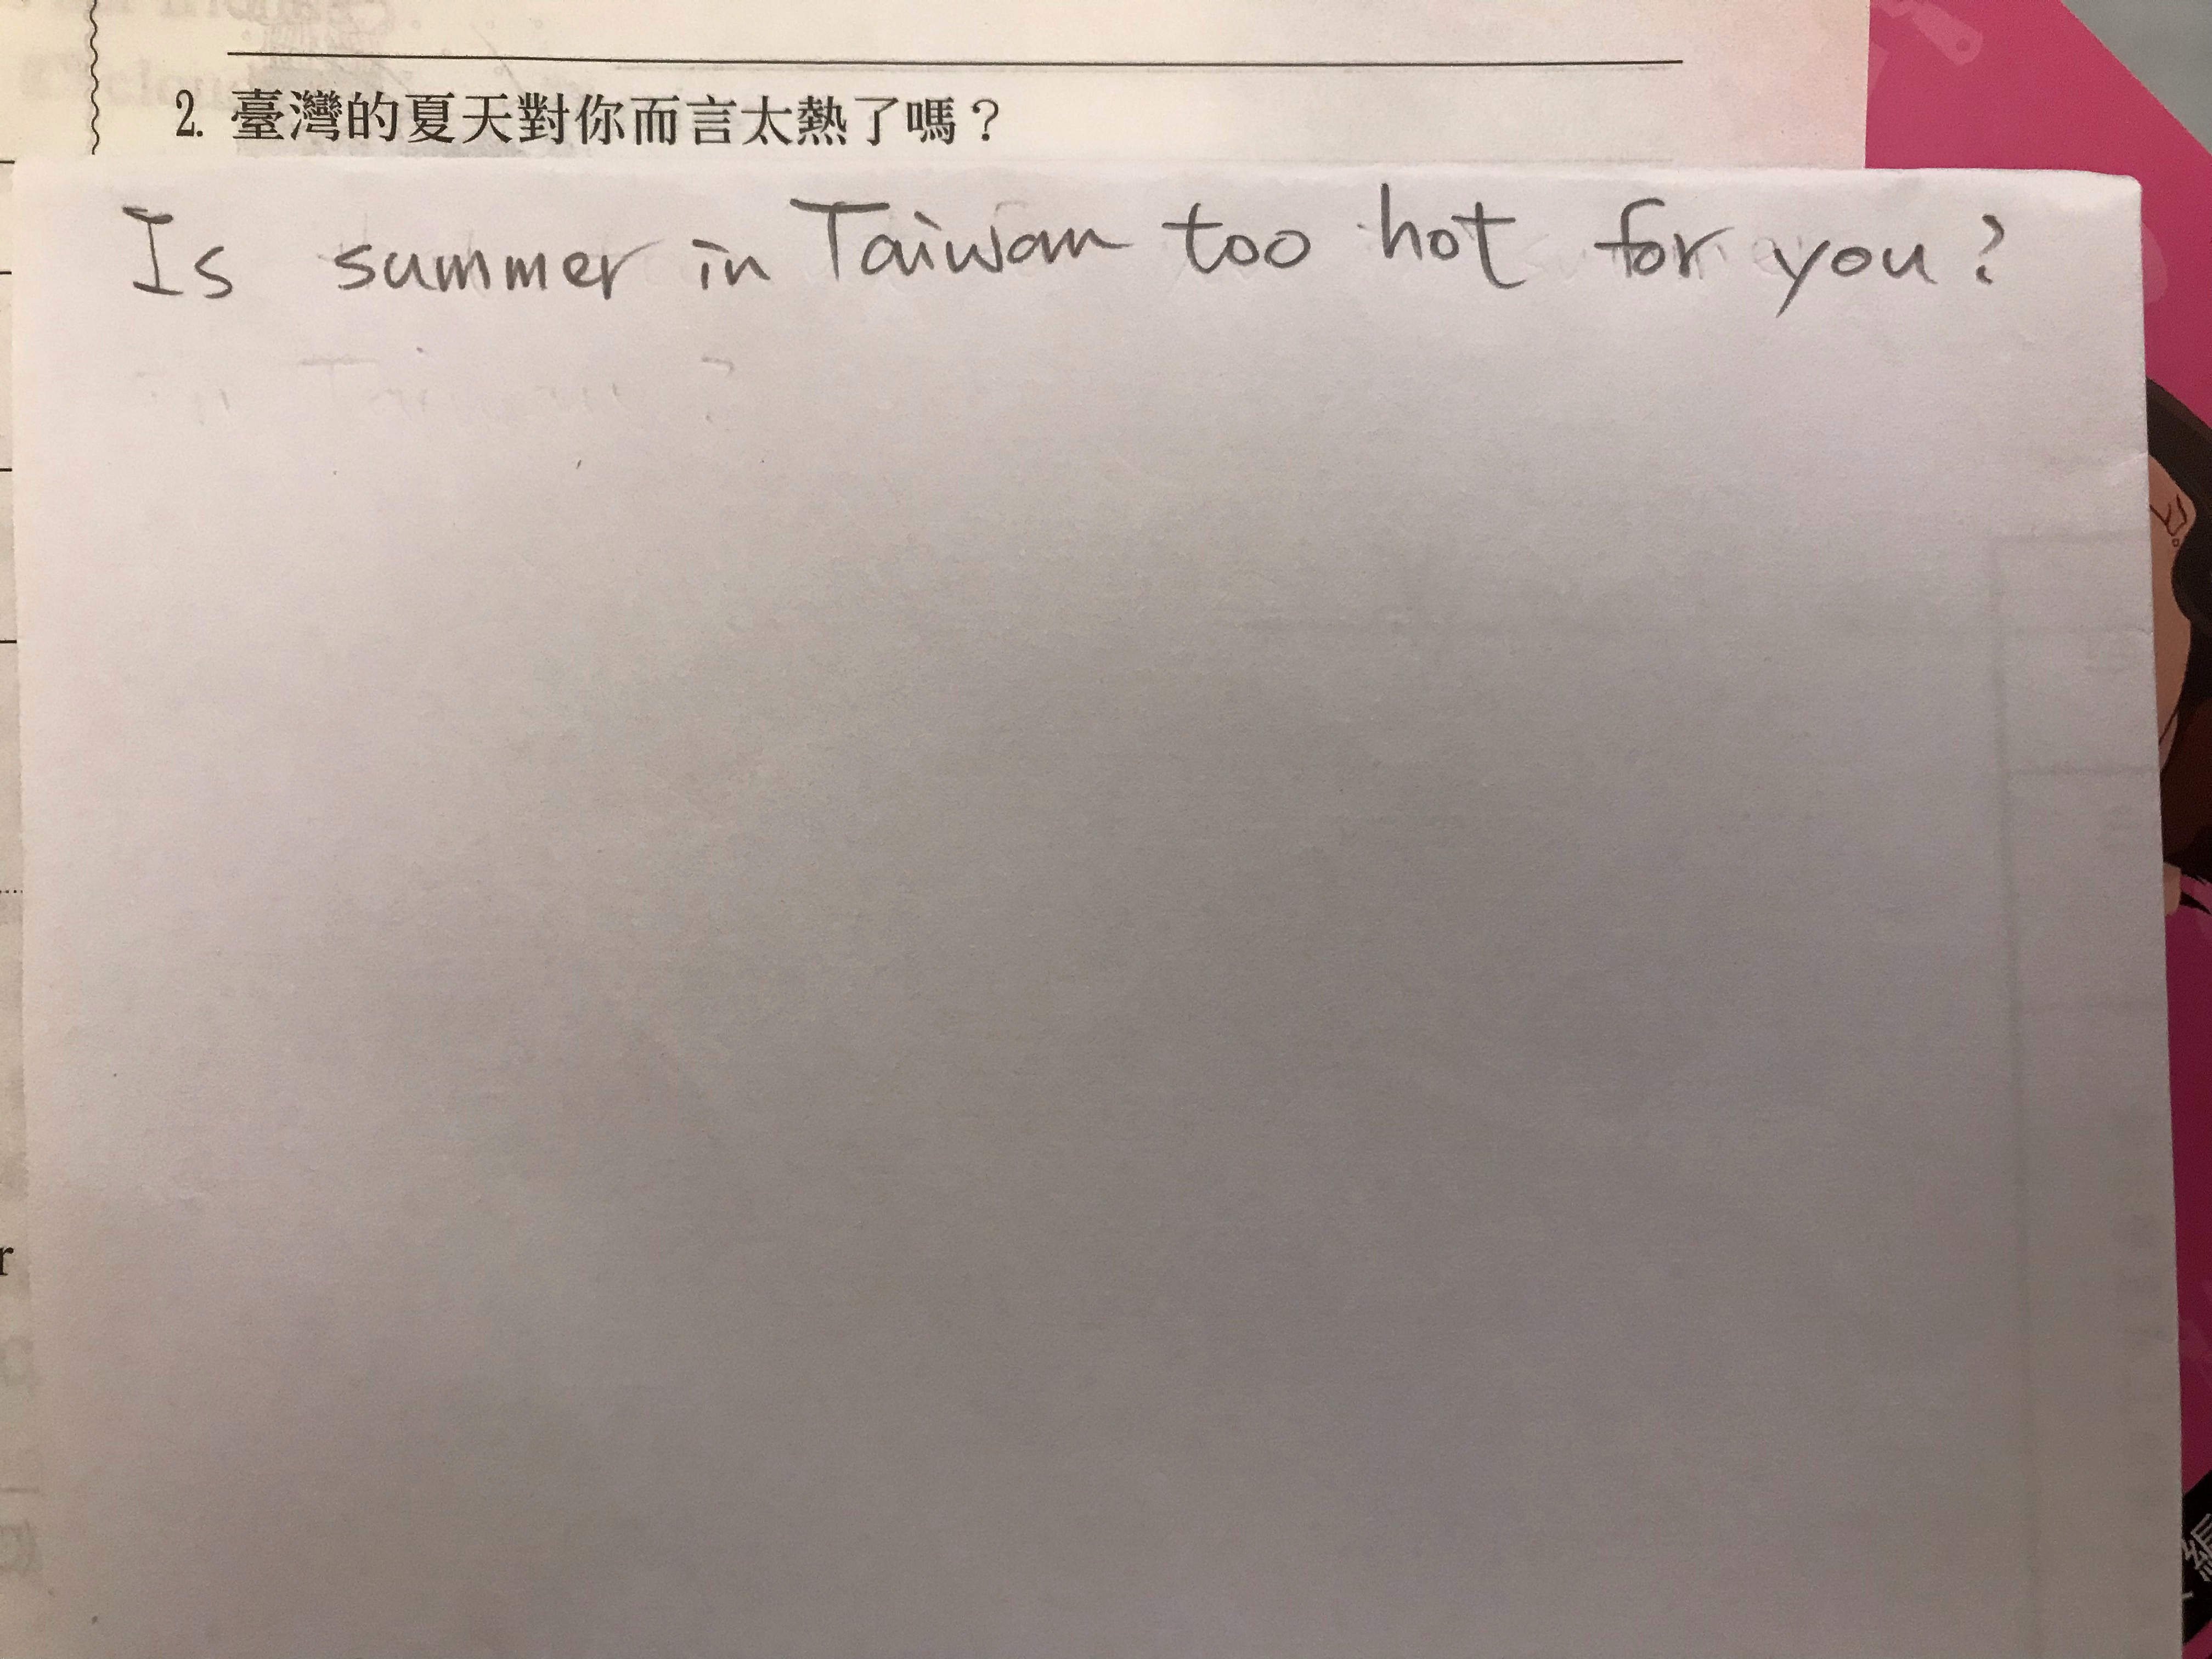 2. 臺灣的夏天對你而言太熱了嗎？
Is summer in Taiwan too hot for you?
r
編